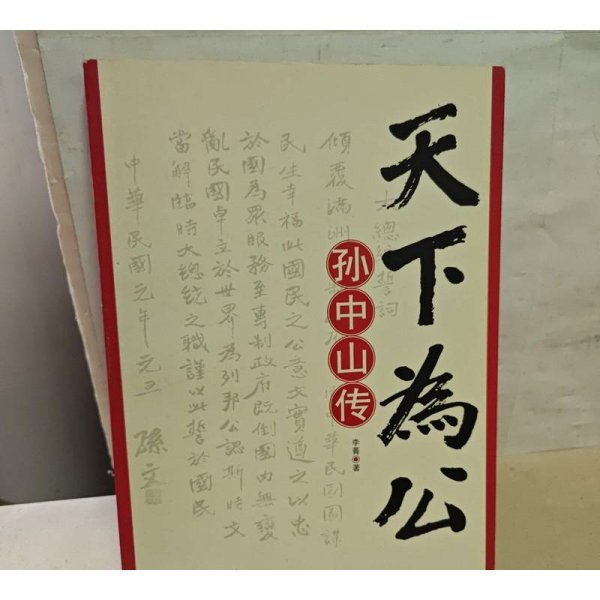 天下為公
孙中山传
李菁 著
大總統誓詞
傾覆滿洲 中華民國圖謀
民生幸福此國民之公意文實遵之以忠
於國為眾服務至專制政府既倒國內無變
亂民國卓立於世界為列邦公認斯時文
當解臨時大總統之職謹以此誓於國民
中華民國元年元旦
孫文